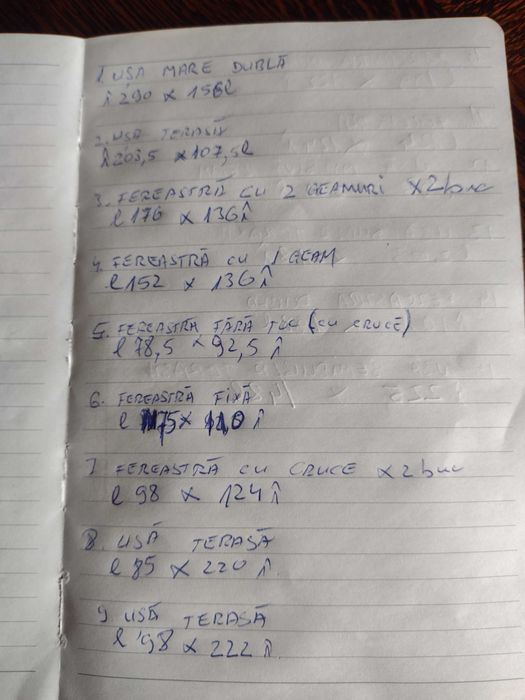 1 UȘA MARE DUBLĂ
î 290 x 156 l
2. UȘĂ TERASĂ
î 203,5 x 107,5 l
3. FEREASTRĂ CU 2 GEAMURI x2buc
l 176 x 136 î
4. FEREASTRĂ CU 1 GEAM
l 152 x 136 î
5. FEREASTRĂ FĂRĂ TOC (CU CRUCE)
l 78,5 x 92,5 î
6. FEREASTRĂ FIXĂ
l 175 x 110 î
7 FEREASTRĂ CU CRUCE x2buc
l 98 x 124 î
8. UȘĂ TERASĂ
l 85 x 220 î.
9 UȘĂ TERASĂ
l 98 x 222 î.